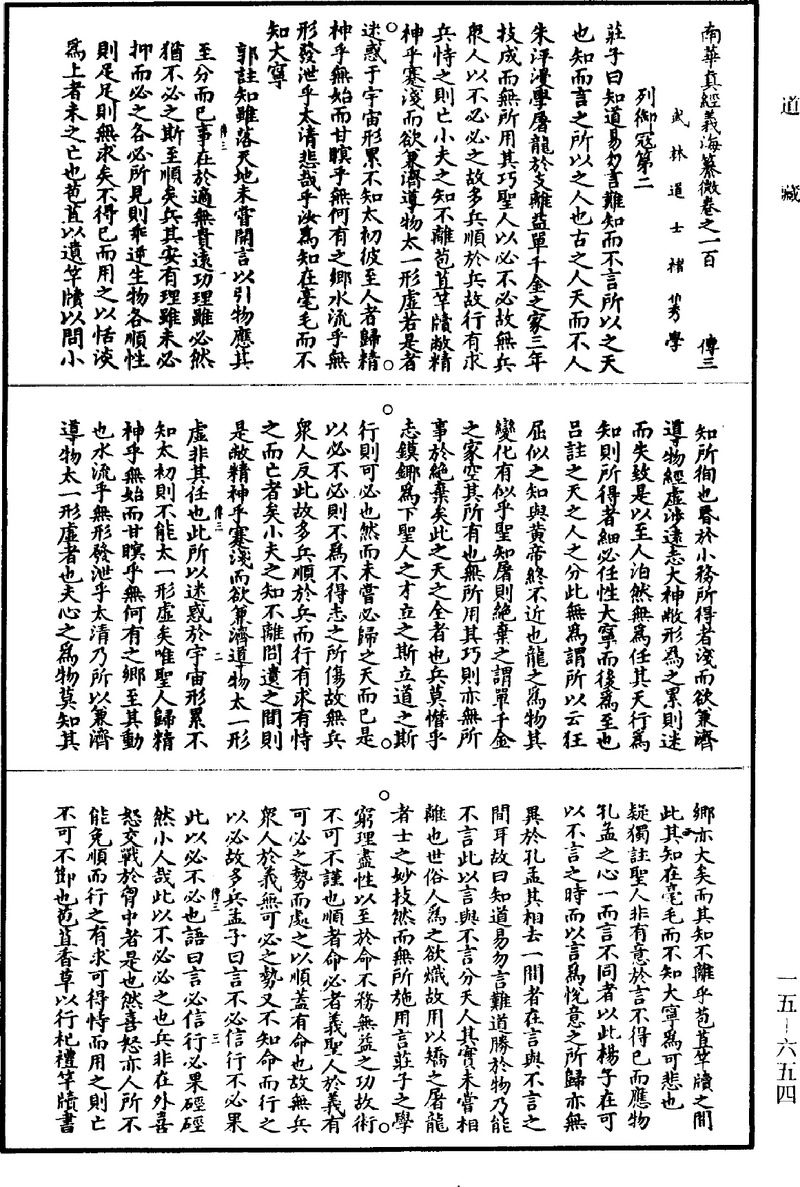 道藏
南華真經義海纂微卷之一百　傳三
武林道士褚伯秀學
列禦寇第二
莊子曰知道易勿言難知而不言所以之天
也知而言之所以之人也古之人天而不人
朱泙漫學屠龍於支離益單千金之家三年
技成而無所用其巧聖人以必不必故無兵
衆人以不必必之故多兵順於兵故行有求
兵恃之則亡小夫之知不離苞苴竿牘敝精
神乎蹇淺而欲兼濟導物太一形虛若是者
迷惑于宇宙形累不知太初彼至人者歸精
神乎無始而甘瞑乎無何有之鄉水流乎無
形發泄乎太清悲哉乎汝為知在毫毛而不
知大寧
郭註知雖落天地未嘗開言以引物應其
至分而已事在於適無貴遠功理雖必然
猶不必之斯至順矣兵其安有理雖未必
抑而必之各必所見則乖逆生物各順性
則足足則無求矣不得已而用之以恬淡
為上者未之亡也苞苴以遺竿牘以問小
知所徇也昬於小務所得者淺而欲兼濟
導物經虛涉遠志大神敝形為之累則迷
而失致是以至人泊然無為任其天行為
知則所得者細必任性大寧而後為至也
呂註之天之人之分此無為謂所以云狂
屈似之知與黃帝終不近也龍之為物其
變化有似乎聖知屠則絕棄之謂單千金
之家空其所有也無所用其巧則亦無所
事於絕棄矣此之天之全者也兵莫憯乎
志鏌鎁為下聖人之才立之斯立道之斯
行則可必也然而未嘗必歸之天而已是
以必不必則不為不得志之所傷故無兵
衆人反此故多兵順於兵而行有求有恃
之而亡者矣小夫之知不離問遺之間則
是敝精神乎蹇淺而欲兼濟導物太一形
虛非其任也此所以迷惑於宇宙形累不
知太初則不能太一形虛矣唯聖人歸精
神乎無始而甘瞑乎無何有之鄉至其動
也水流乎無形發泄乎太清乃所以兼濟
導物太一形虛者也夫心之為物莫知其
鄉亦大矣而其知不離乎苞苴竿牘之間
此其知在毫毛而不知大寧為可悲也
疑獨註聖人非有意於言不得已而應物
孔孟之心一而言不同者以此楊子在可
以不言之時而以言為悅意之所歸亦無
異於孔孟其相去一間者在言與不言之
間耳故曰知道易勿言難道勝於物乃能
不言此以言與不言分天人其實未嘗相
離也世俗人為之欲熾故用以矯之屠龍
者士之妙技然而無所施用言莊子之學
窮理盡性以至於命不務無益之功故術
不可不謹也順者命必者義聖人於義有
可必之勢而處之以順蓋有命也故無兵
衆人於義無可必之勢又不知命而行之
以必故多兵孟子曰言不必信行不必果
此以必不必也語曰言必信行必果硜硜
然小人哉此以不必必之也兵非在外喜
怒交戰於胷中者是也然喜怒亦人所不
能免順而行之有求可得恃而用之則亡
不可不卹也苞苴香草以行杝禮竿牘書
一五-六五四